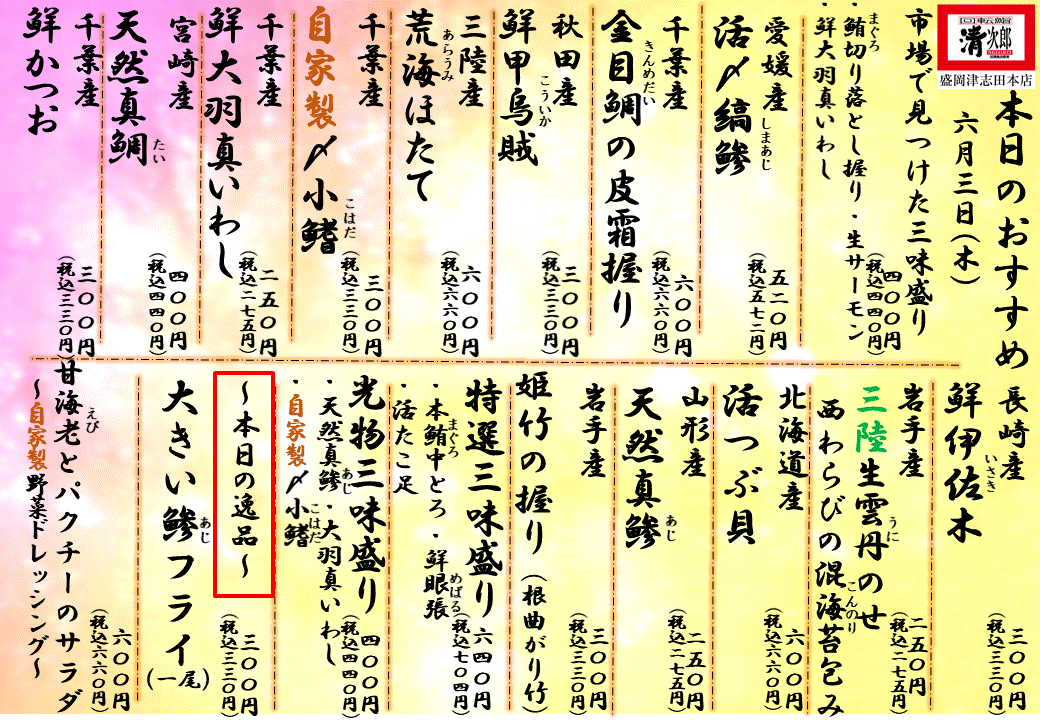 回転鮨
清次郎
盛岡津志田本店
本日のおすすめ
六月三日(木)
市場で見つけた三味盛り
・鮪切り落とし握り・生サーモン
まぐろ
・鮮大羽真いわし
四〇〇円
(税込四四〇円)
愛媛産
活〆縞鯵
しまあじ
五二〇円
(税込五七二円)
千葉産
金目鯛の皮霜握り
きんめだい
六〇〇円
(税込六六〇円)
秋田産
鮮甲烏賊
こういか
三〇〇円
(税込三三〇円)
三陸産
荒海ほたて
あらうみ
六〇〇円
(税込六六〇円)
千葉産
自家製〆小鰭
こはだ
三〇〇円
(税込三三〇円)
千葉産
鮮大羽真いわし
二五〇円
(税込二七五円)
宮崎産
天然真鯛
たい
四〇〇円
(税込四四〇円)
千葉産
鮮かつお
三〇〇円
(税込三三〇円)
長崎産
鮮伊佐木
いさき
三〇〇円
(税込三三〇円)
岩手産
三陸生雲丹のせ
うに
西わらびの混海苔包み
こんのり
二五〇円
(税込二七五円)
北海道産
活つぶ貝
六〇〇円
(税込六六〇円)
山形産
天然真鯵
あじ
二五〇円
(税込二七五円)
岩手産
姫竹の握り(根曲がり竹)
三〇〇円
(税込三三〇円)
特選三味盛り
・本鮪中とろ・鮮眼張
まぐろ
めばる
・活たこ足
六四〇円
(税込七〇四円)
光物三味盛り
・天然真鯵・大羽真いわし
あじ
・自家製〆小鰭
こはだ
四〇〇円
(税込四四〇円)
~本日の逸品~
大きい鯵フライ(一尾)
あじ
三〇〇円
(税込三三〇円)
甘海老とパクチーのサラダ
えび
~自家製野菜ドレッシング~
六〇〇円
(税込六六〇円)